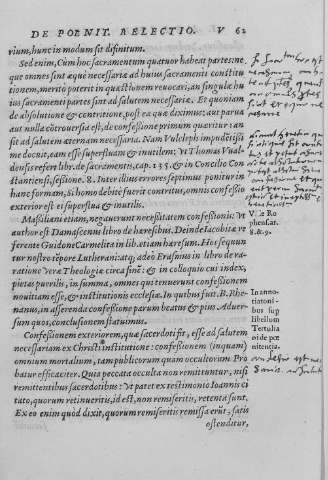 DE POENIT. RELECTIO. V 62
rium, hunc in modum sit difinitum.
Sed enim, Cùm hoc sacramentum quatuor habeat partes: ne-
que omnes sint æquè necessariæ ad huius sacramenti constitu
tionem, meritò poterit in quæstionem reuocari, an singulæ hu
ius sacramenti partes sint ad salutem necessariæ. Et quoniam
de absolutione & contratione, post ea quæ diximus: aut parua
aut nulla cõtrouersia est, de confessione primum quæritur: an
sit ad salutem æternam necessaria. Nam Vuicleph impudētissi
mè docuit, eam esse superfluam & inutilem: Vt Thomas Vual-
densis refert lib. de sacramentis, cap. 135. & in Concilio Con
stantiensi, sessione. 8. Inter illius errores septimus ponitur in
hanc formam, Si homo debitè fuerit contritus, omnis confessio
exterior est ei superflua & inutilis.
Massiliani etiam, negauerunt necessitatem confessionis: Vt
author est Damascenus libro de hæresibus. Deinde Iacobitæ re
ferente Guidone Carmelita in lib. etiam hæresum. Hos sequun
tur nostro tēpore Lutherani: atq; adeo Erasmus in libro de ra-
ratione veræ Theologiæ circa finē: & in colloquio cui index,
pietas puerilis, in summa, omnes qui tenuerunt confessionem
nouitiam esse, & institutionis ecclesiæ. In quibus fuit. B. Rhe-
nanus, in asserenda confessione parum beatus & pius. Aduer-
sum quos, conclusionem statuimus.
Confessionem exteriorem, quæ sacerdoti fit, esse ad salutem
necessariam ex Christi institutione: confessionem (inquam)
omnium mortalium, tam publicorum quàm occultorum. Pro
batur efficaciter. Quia peccata occulta non remittuntur, nisi
remittentibus sacerdotibus: Vt patet ex testimonio Ioannis ci
tato, quorum retinueritis, id est, non remiseritis, retenta sunt.
Ex eo enim quòd dixit, quorum remiseritis remissa erūt, satis
ostenditur,
Vide Ro
phensar.
8. & 9.
In anno-
tationi-
bus sup
libellum
Tertulia
ni de pœ
nitentia.